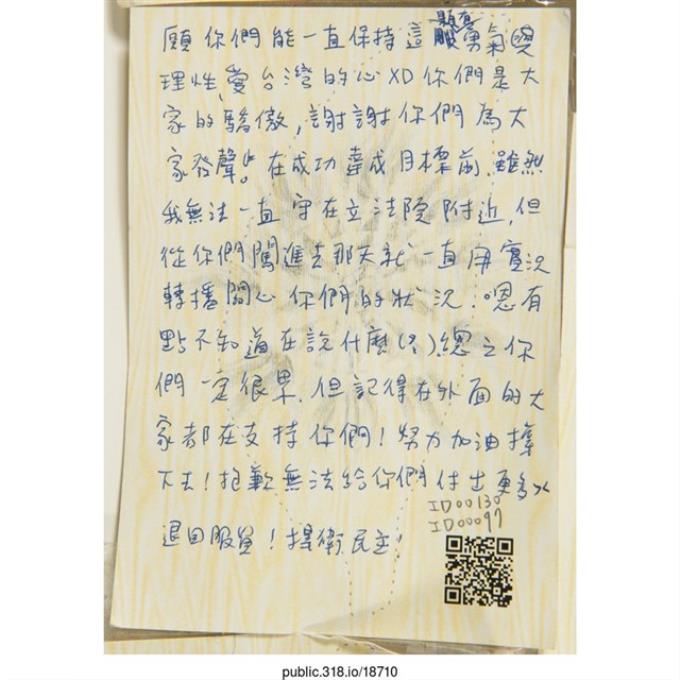 願你們能一直保持這顆有勇氣與
理性,愛台灣的心XD你們是大
家的驕傲,謝謝你們為大
家發聲!在成功達成目標前,雖然
我無法一直守在立法院附近,但
從你們闖進去那天就一直用實況
轉播關心你們的狀況.嗯有
點不知道在說什麼(?).總之你
們一定很累.但記得在外面的大
家都在支持你們!努力加油撐
下去!抱歉無法給你們付出更多
ID00130
ID00097
退回服貿!捍衛民主!
public.318.io/18710